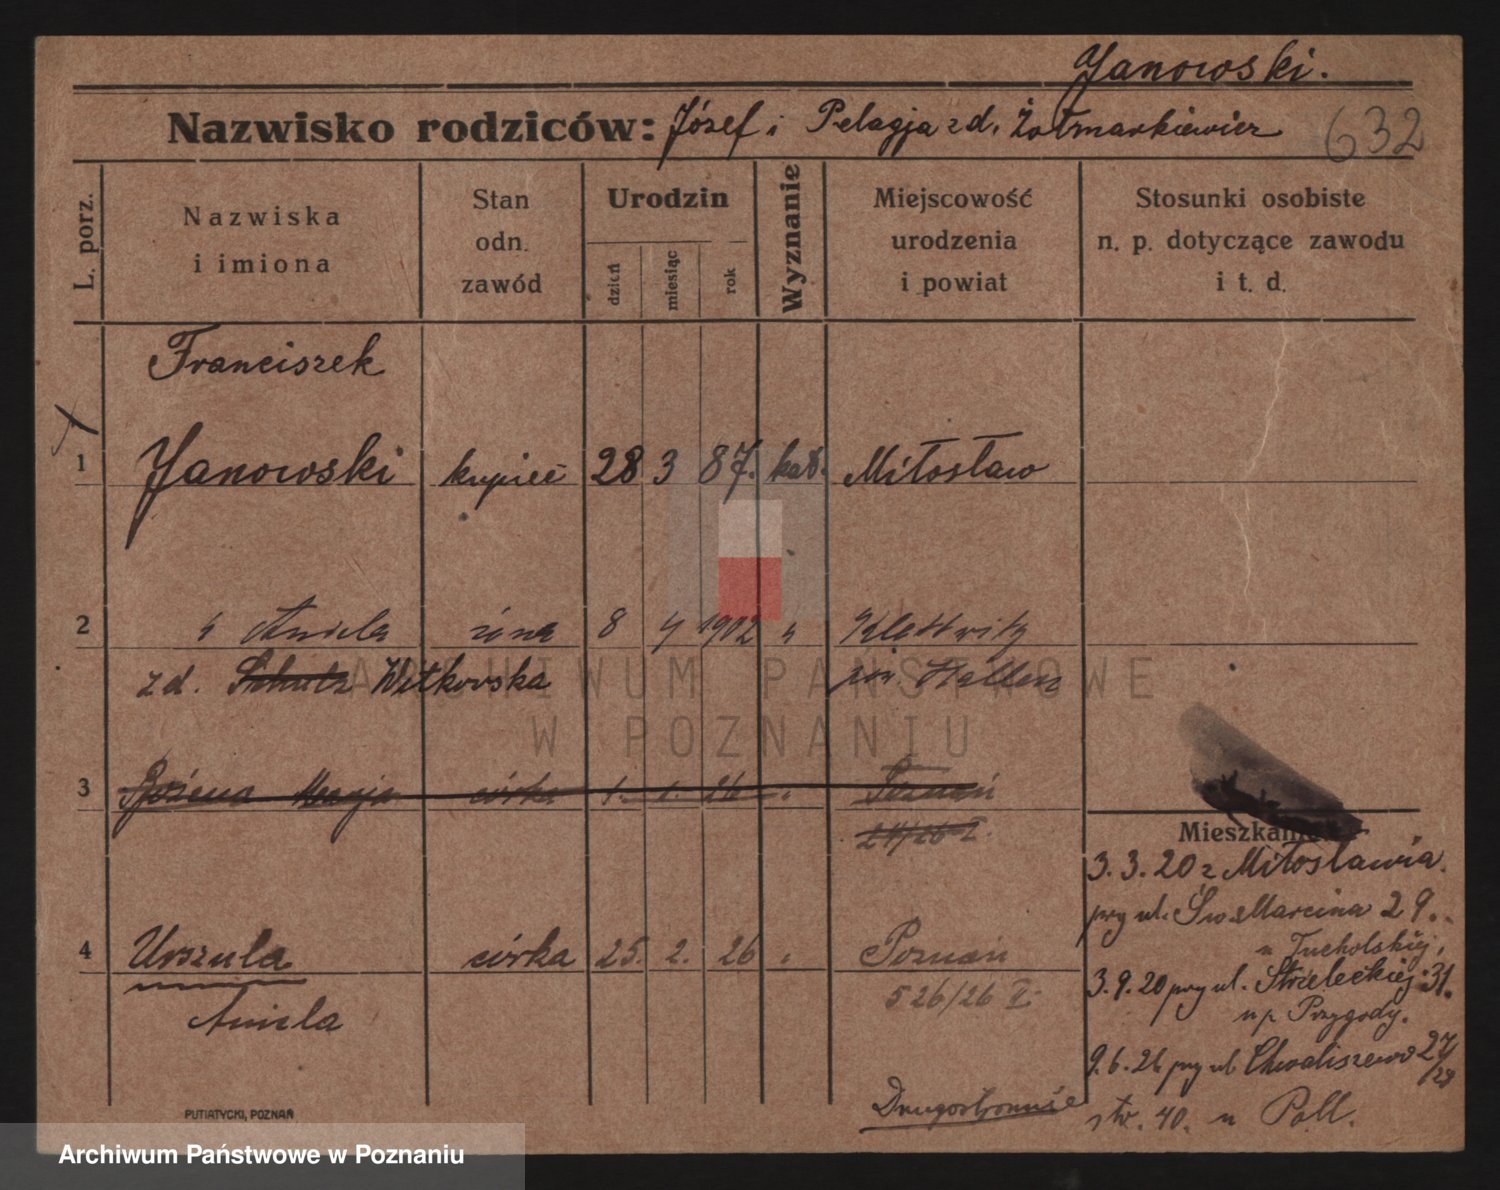 Janowski.
Nazwisko rodziców: Józef i Pelagja z d. Żołmarkiewicz
632
L. porz.
Nazwiska i imiona
Stan odn. zawód
Urodzin
dzień
miesiąc
rok
Wyznanie
Miejscowość urodzenia i powiat
Stosunki osobiste n. p. dotyczące zawodu i t. d.
Franciszek
1 Janowski kupiec 28 3 87. kat. Miłosław
2 " Aniela żona 8 4 1902 " Klettwitz
z d. Schutz Witkowska
3 Bożena Maryja córka 1. 1. 26 Poznań
24/26 I.
Mieszkanie
3. 3. 20 z Miłosławia.
przy ul. Św. Marcina 29.
u Tucholskiej,
4 Urszula córka 25. 2. 26 Poznań
3. 9. 20 przy ul. Strzeleckiej 31.
526/26 I.
Aniela
u p. Przygody.
9. 6. 26 przy ul Chwaliszewo 27/28
Drugostronnie
str. 40. u Poll.
PUTIATYCKI, POZNAŃ
ARCHIWUM PAŃSTWOWE
W POZNANIU
Archiwum Państwowe w Poznaniu